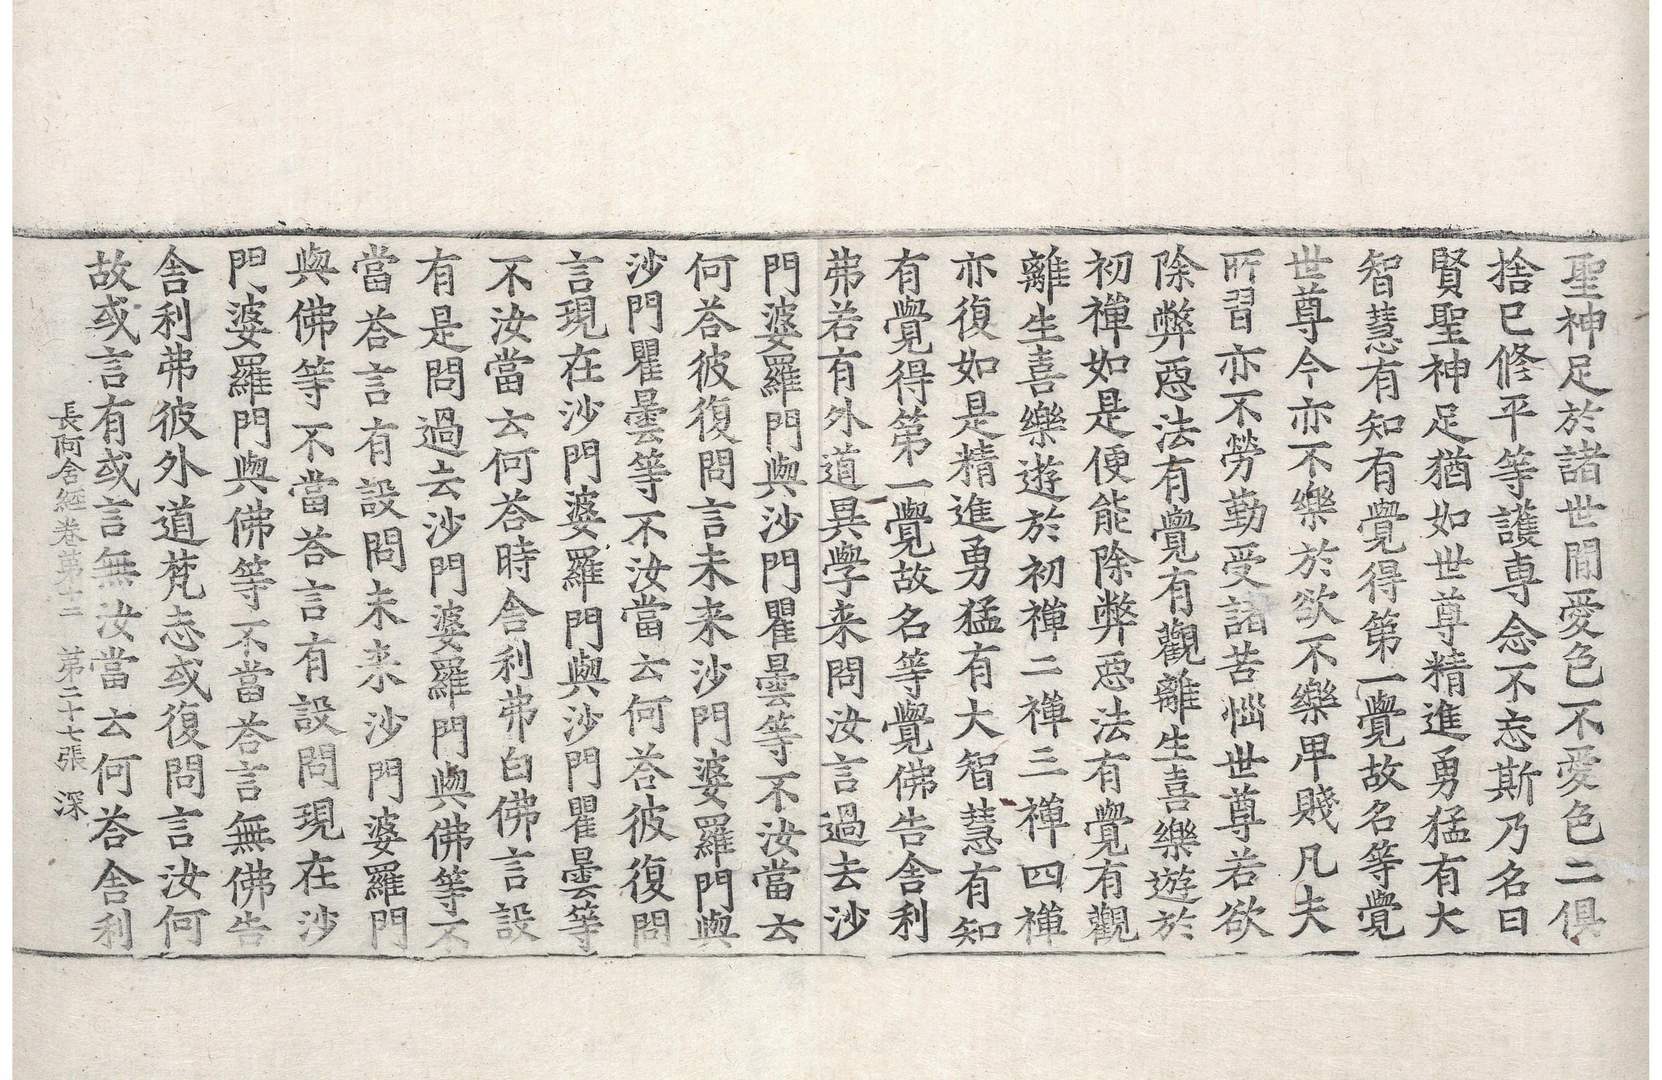 聖神足於諸世間愛色不愛色二俱
捨已修平等護専念不忘斯乃名曰
賢聖神足猶如世尊精進勇猛有大
智慧有知有覺得第一覺故名等覺
世尊今亦不樂於欲不樂卑賤凡夫
所習亦不勞勤受諸苦惱世尊若欲
除弊惡法有覺有觀離生喜樂遊於
初禪如是便能除弊惡法有覺有觀
離生喜樂遊於初禪二禪三禪四禪
亦復如是精進勇猛有大智慧有知
有覺得第一覺故名等覺佛告舍利
弗若有外道異學来問汝言過去沙
門婆羅門與沙門瞿曇等不汝當云
何荅彼復問言未来沙門婆羅門與
沙門瞿曇等不汝當云何荅彼復問
言現在沙門婆羅門與沙門瞿曇等
不汝當云何荅時舍利弗白佛言設
有是問過去沙門婆羅門與佛等不
當荅言有設問未来沙門婆羅門
與佛等不當荅言有設問現在沙
門婆羅門與佛等不當荅言無佛告
舍利弗彼外道梵志或復問言汝何
故或言有或言無汝當云何荅舍利
長阿含經卷第十二 第二十七張 深